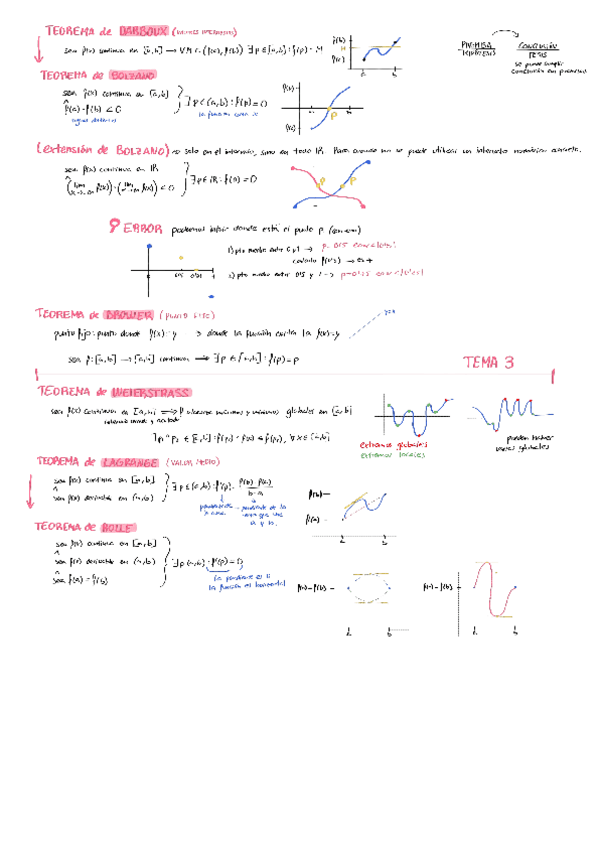 TEOREMA de DARBOUX (VALORES INTERMEDIOS)
sea f(x) continua en [a,b] → ∀M ∈ (f(a), f(b)) ∃ p ∈ [a,b] : f(p) = M
f(b)
M
f(a)
a
b
PREMISA
HIPÓTESIS
CONCLUSIÓN
TESIS
se puede cumplir
conclusión sin premisa
TEOREMA de BOLZANO
sea f(x) continua en [a,b]
^
f(a) · f(b) < 0
signos distintos
∃ p ∈ (a,b) : f(p) = 0
la función corta
f(b)
f(a)
p
(extensión de BOLZANO) no solo en el intervalo, sino en todo ℝ. Para
se puede utilizar un intervalo numérico concreto.
sea f(x) continua en ℝ
∃ p ∈ ℝ : f(p) = 0
p
p
ERROR podemos saber donde está el punto p (error)
1) pto medio entre 0 y 1 → p = 0'5
calcula f(0'5) →
2) pto medio entre 0'5 y 1 →
0'5
1
TEOREMA de BROUWER (PUNTO FIJO)
punto fijo: punto donde f(x) = y → donde la función corta la f(x) = y
y=x
sea f: [a,b] → [a,b] continua ⟹ ∃ p ∈ [a,b] : f(p) = p
TEMA 3
TEOREMA de WEIERSTRASS
sea f(x) continua en [a,b] ⟹ f alcanza máximos y mínimos globales en [a,b]
intervalo cerrado y acotado
∃ p₁ ^ p₂ ∈ [a,b] : f(p₁) ≤ f(x) ≤ f(p₂), ∀x ∈ [a,b]
extremos globales
extremos locales
pueden haber
varios globales
TEOREMA de LAGRANGE (VALOR MEDIO)
sea f(x) continua en [a,b]
^
sea f(x) derivable en (a,b)
∃ p ∈ (a,b) : f'(p) = f(b) - f(a)
b - a
pendiente
pendiente de la
recta que une
a y b
f(b)
f(a)
a
b
TEOREMA de ROLLE
sea f(x) continua en [a,b]
^
sea f(x) derivable en (a,b)
^
sea f(a) = f(b)
∃ p (a,b) : f'(p) = 0
la pendiente es 0
la función es horizontal
f(a) = f(b)
a
b
f(a) = f(b)
a
b